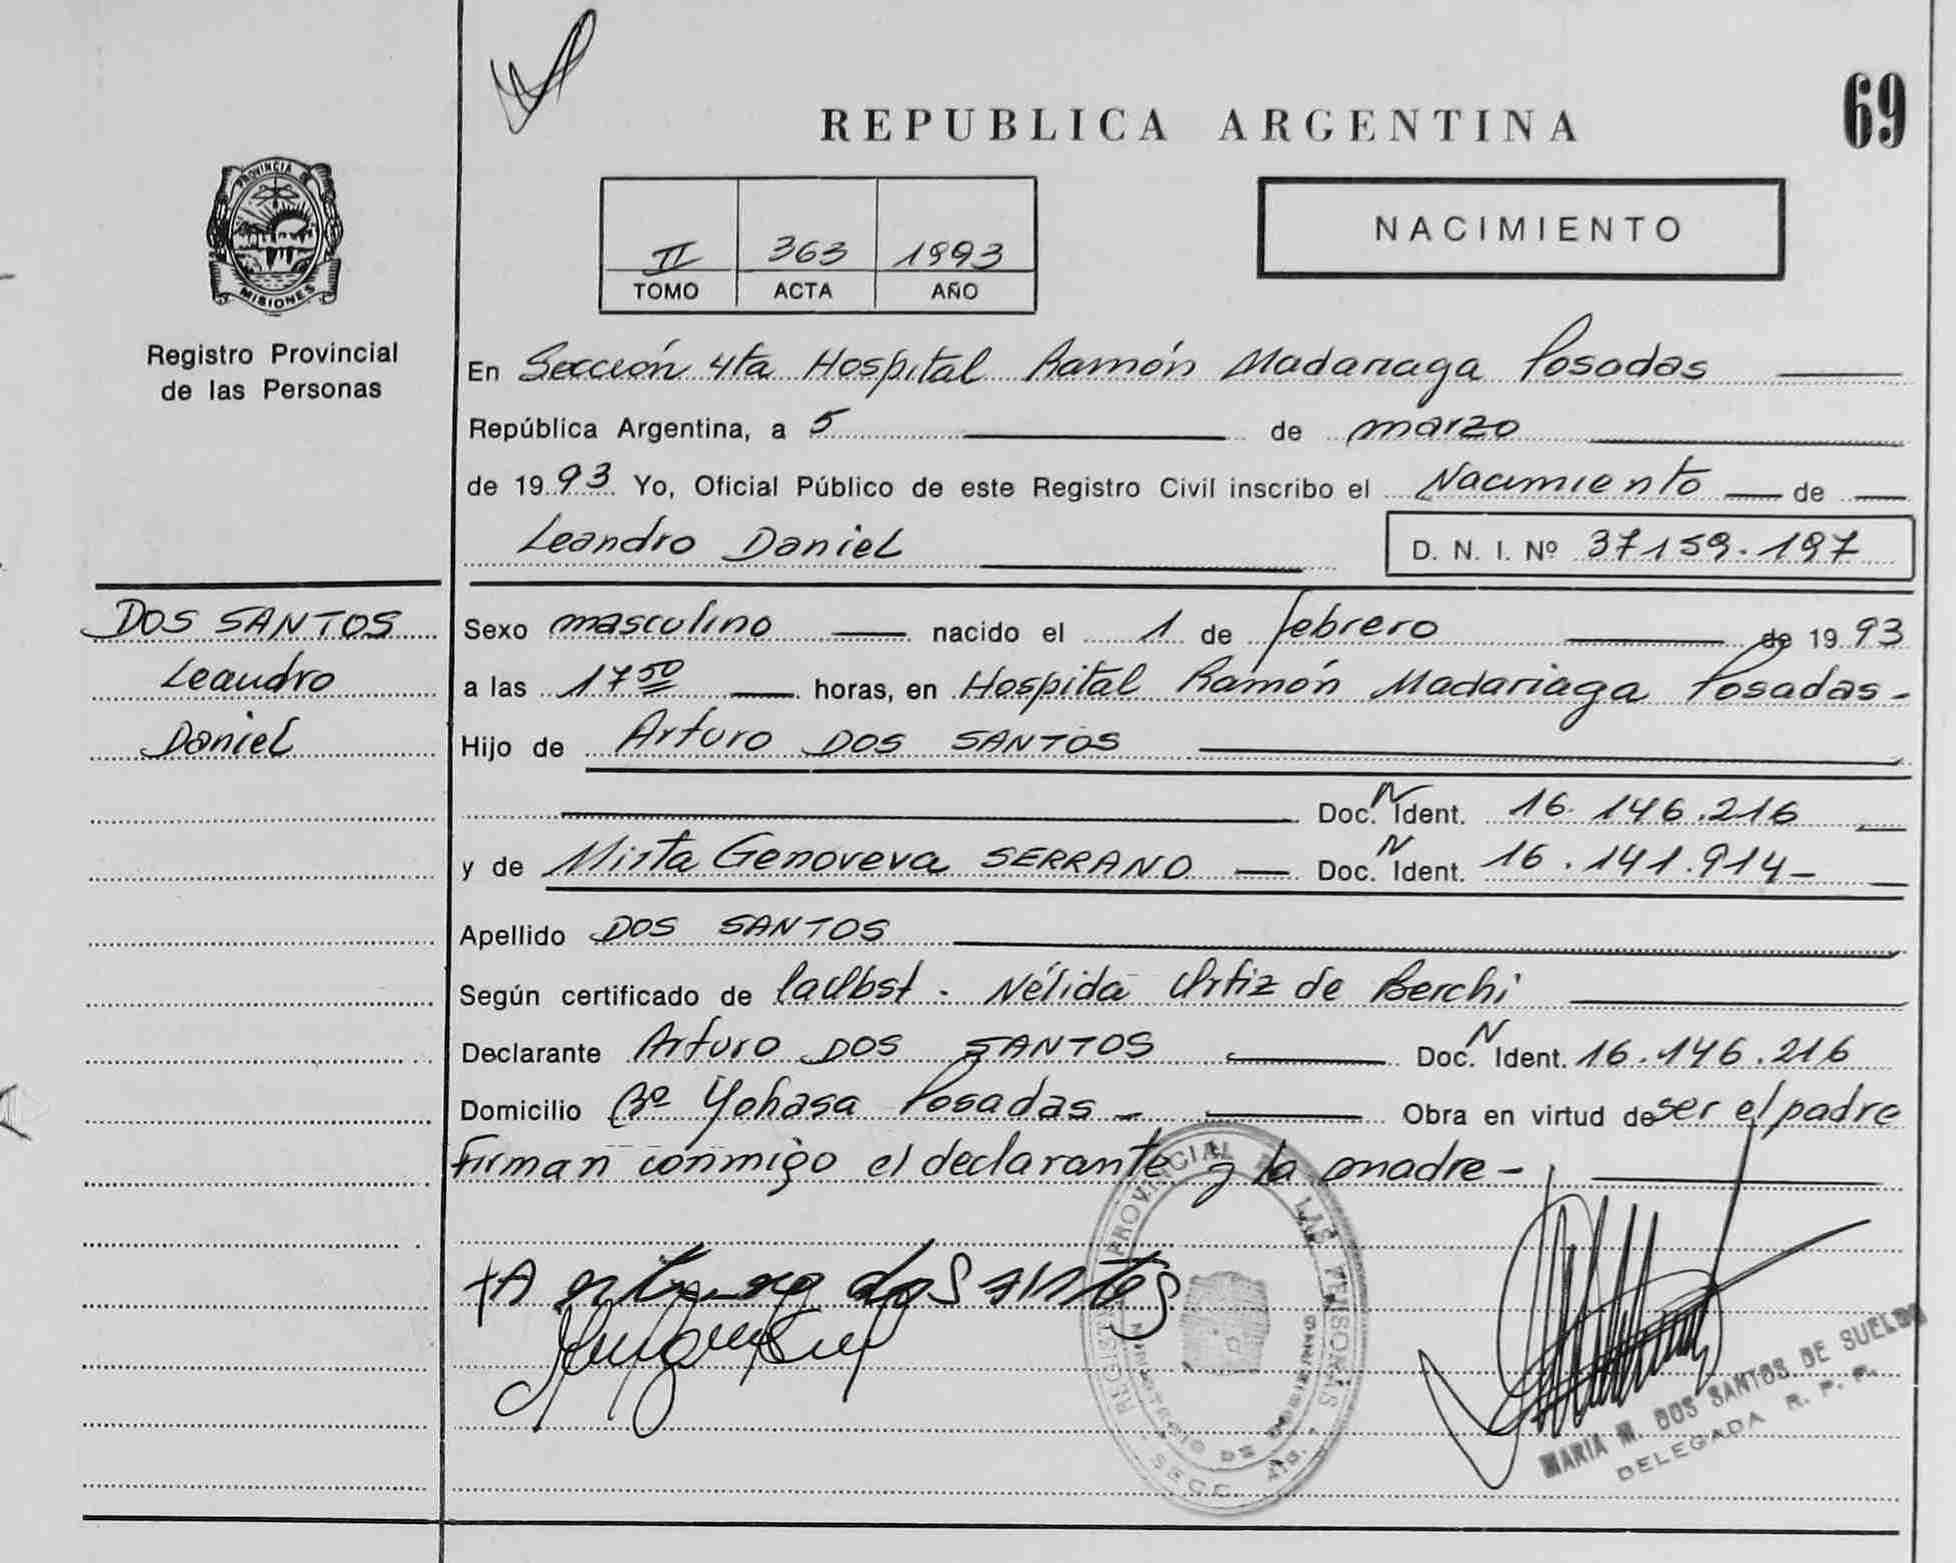 REPUBLICA ARGENTINA
69
PROVINCIA DE
MISIONES
Registro Provincial
de las Personas
II 363 1993
TOMO ACTA AÑO
NACIMIENTO
En Sección 4ta Hospital Ramón Madariaga Posadas
República Argentina, a 5 de marzo
de 1993 Yo, Oficial Público de este Registro Civil inscribo el Nacimiento de
Leandro Daniel D. N. I. Nº 37159.197
DOS SANTOS
Leandro
Daniel
Sexo masculino nacido el 1 de febrero de 1993
a las 17 50 horas, en Hospital Ramón Madariaga Posadas-
Hijo de Arturo DOS SANTOS
Doc. N Ident. 16.146.216
y de Mirta Genoveva SERRANO Doc. N Ident. 16.141.914-
Apellido DOS SANTOS
Según certificado de Nélida Ortiz de Berchi
Declarante Arturo DOS SANTOS Doc. N Ident. 16.146.216
Domicilio Bº Yohasa Posadas - Obra en virtud de ser el padre
firman conmigo el declarante y la madre-
REGISTRO PROVINCIAL DE LAS PERSONAS
MINISTERIO DE GOBIERNO
SECC. 4ta.
Arturo dos santos
MARIA M. DOS SANTOS DE SUELDO
DELEGADA R. P. P.